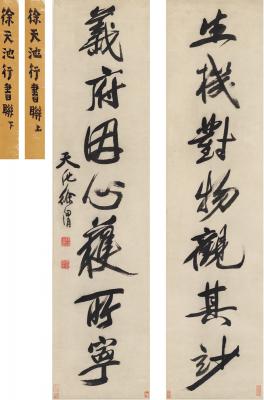 徐天池行書聯上
徐天池行書聯下
生機對物觀其妙
義府因心獲所寧
天池徐渭